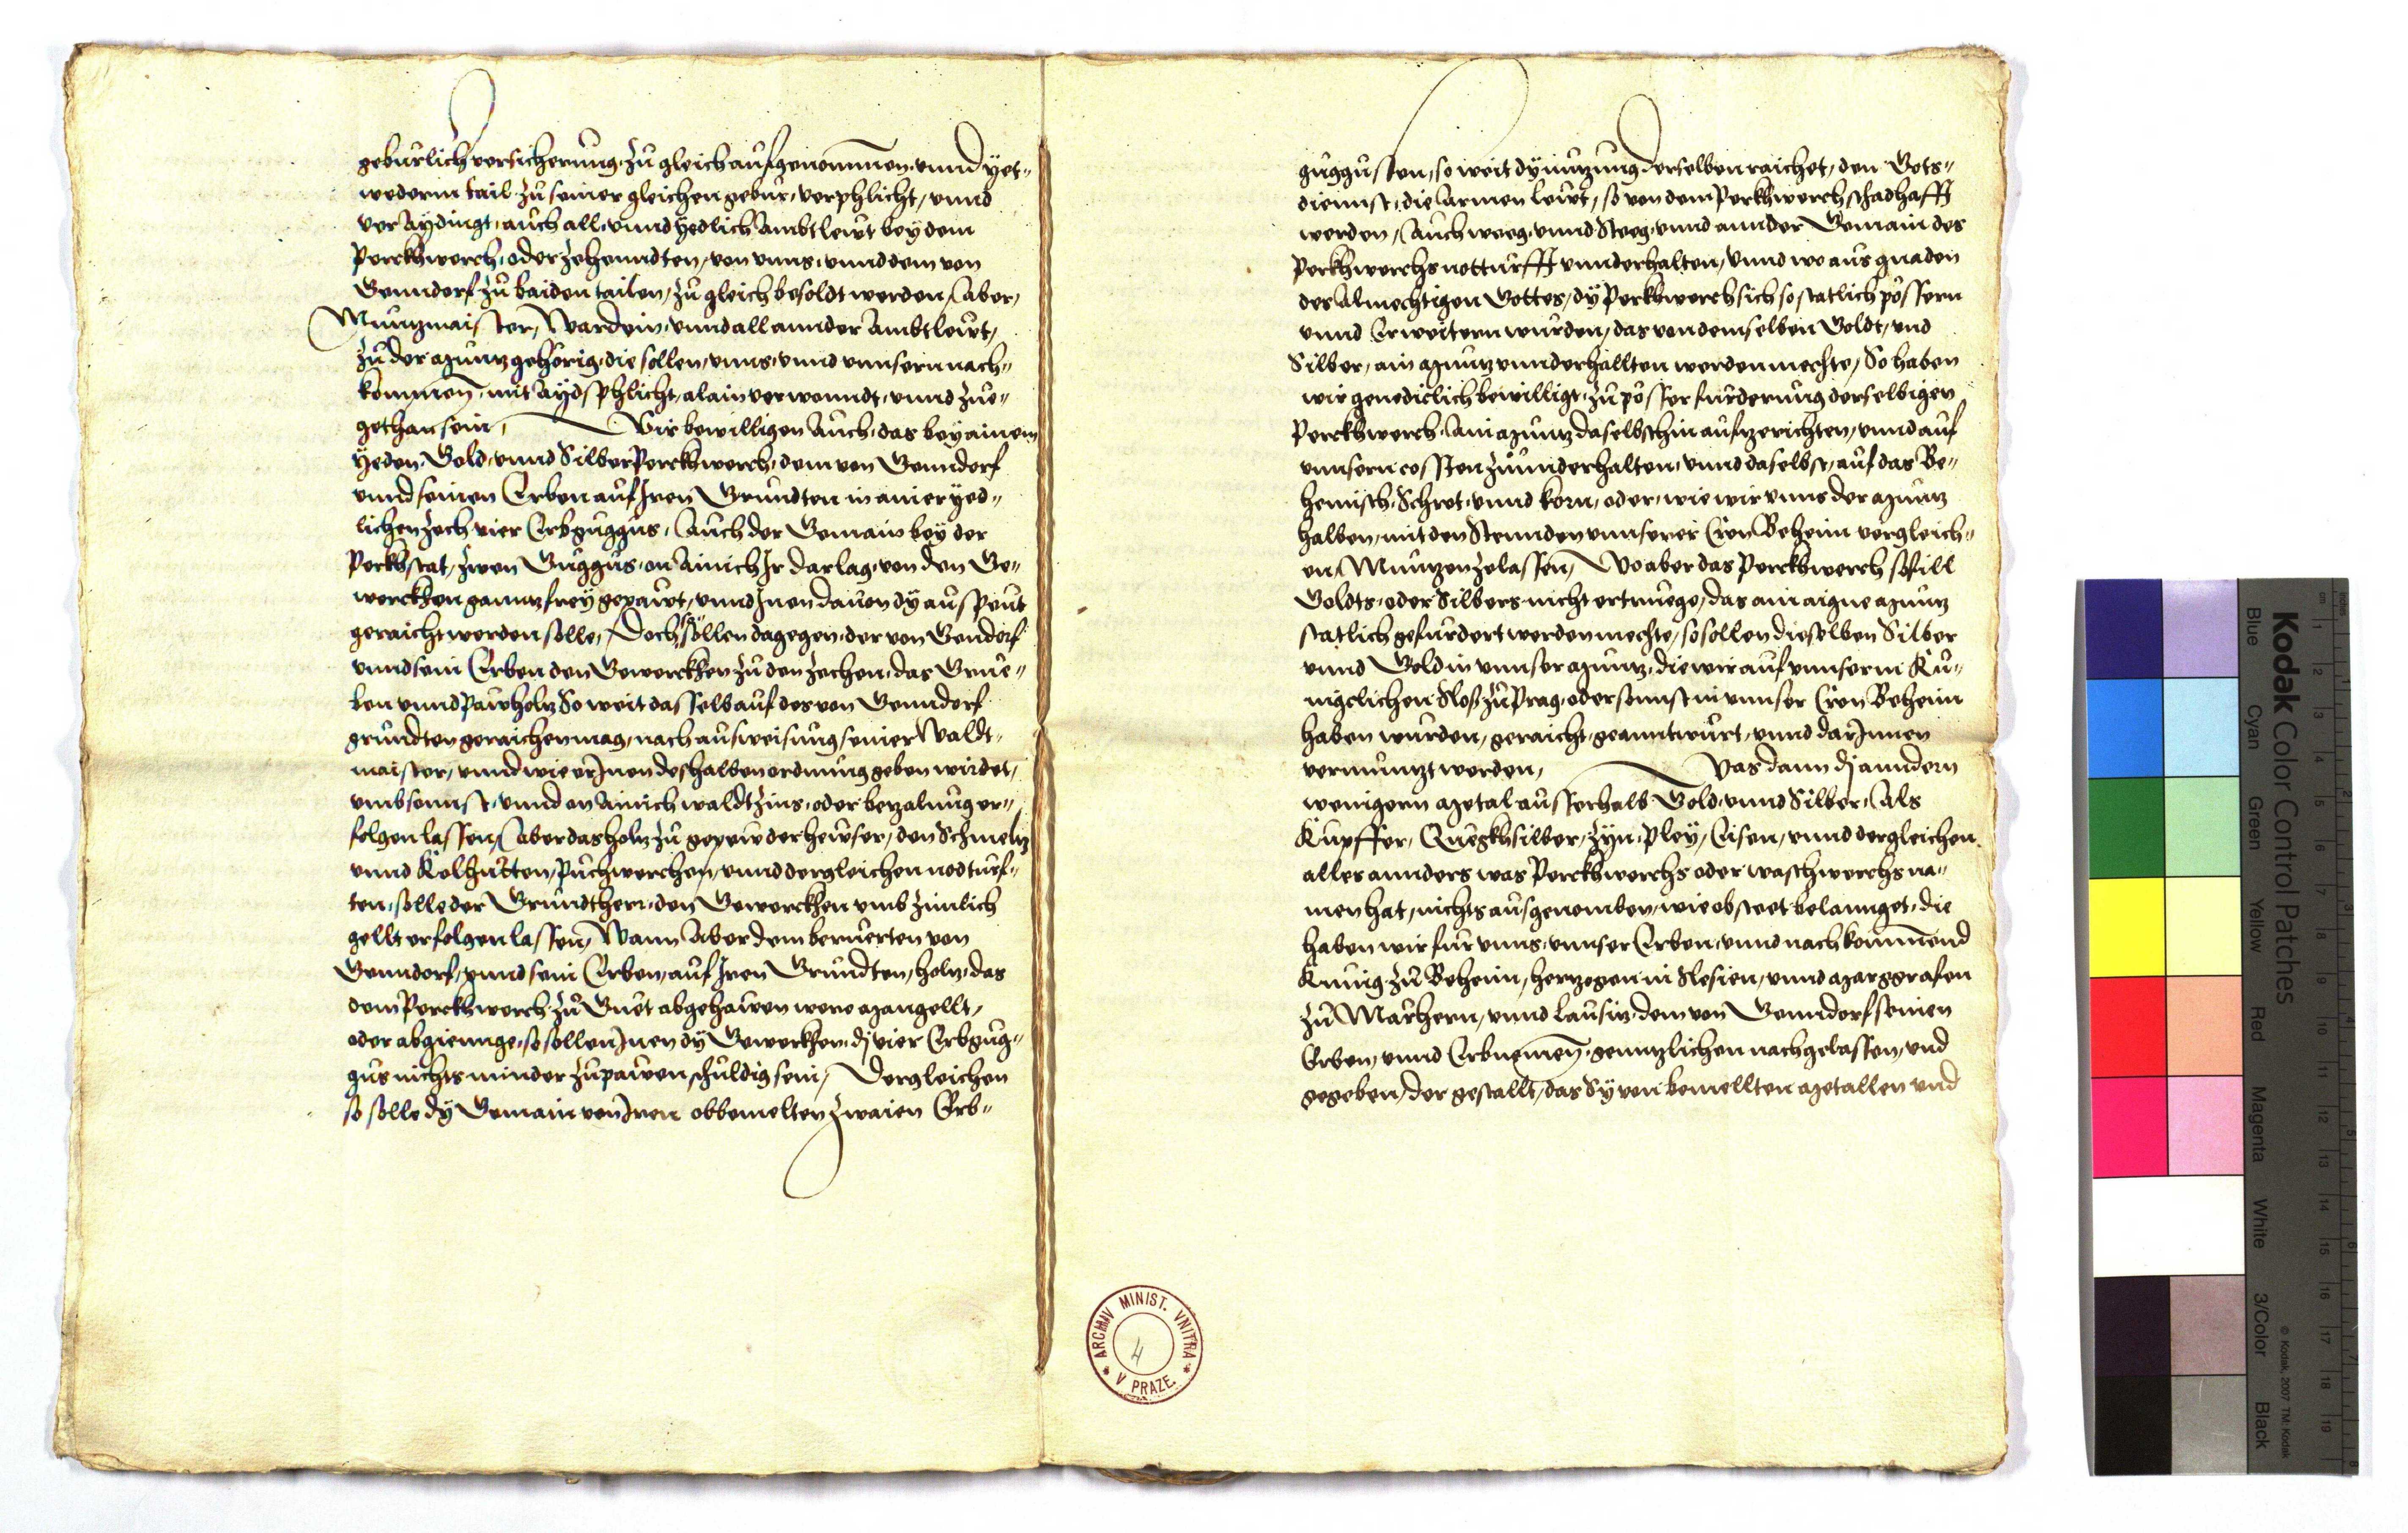 geburlich versicherung, zu gleich aufgenommen, vnnd yet-
wederm tail zu seiner gleichen gebur, verphlicht, vnnd
verAydingt, auch all, vnnd yedlich Ambtlewt bey dem
Perckhwerch, oder zehenndten, von vnns, vnnd dem von
Genndorf zu baiden tailen, zu gleich besoldt werden, Aber,
Muntzmaister, Wardein, vnnd all annder Ambtlewt,
zu der Muntz gehorig, die sollen, vnns, vnnd vnnsern nach-
kommen, mit Ayds phlicht, alain verwonndt, vnnd zue-
gethan sein, Wir bewilligen Auch, das bey ainem
yeden, Gold, vnnd Silber Perckhwerch, dem von Genndorf
vnnd seinen Erben auf Iren Grundten in ainer yed-
lichen zech vier Erbguggus, Auch der Gemain bey der
Perkhstat, zwen Guggus, on Ainich Ir darlag, von den Ge-
werckhen ganntz frey gepawt, vnnd Inen dauon dy ausPeut
geraicht werden solle, Doch sollen dagegen, der von Gendorf
vnnd sein Erben den Gewerckhen zu den zechen, das Grue-
ben vnnd Pawholtz So weit dasselb auf des von Genndorf
grundten geraichen mag, nach ausweisung seiner Waldt-
maister, vnnd wie er Inen deshalben ordnung geben wirdet,
vmbsonnst, vnnd on Ainich waldtzins, oder bezalung er-
folgen lassen, Aber das holtz zu gepew der hewser, den Schmeltz
vnnd Kolhutten, Puchwerchen, vnnd dergleichen nodturf-
ten, solle der Grundtherr, den Gewerckhen vmb zimlich
gellt erfolgen lassen, Wann Aber dem beruerten von
Genndorf, vnnd sein Erben, auf Iren Grundten, holtz, das
dem Perckhwerch zu Guet abgehawen were Mangellt,
oder abgiennge, so sollen Inen dy Gewerkhen, dj vier Erbgug-
gus nichts minder zupawen schuldig sein, Dergleichen
so solle dy Gemain von Iren obbemelten zwaien Erb-
guggussen, so weit dy nutzung derselben raichet, den Gots-
diennst, die Armen lewt, so von dem Perkhwerch schadhafft
werden, Auch weeg, vnnd Steeg, vnnd annder Gemain des
Perkhwerchs notturfft vnnderhalten, Vnnd wo aus gnaden
des Almechtigen Gottes, dy Perkhwerch sich so statlich possern
vnnd Erweitern wurden, das von demselben Goldt, vnd
Silber, ain Muntz vnnderhallten werden mechte, So haben
wir genediclich bewilligt, zu posser furderung derselbigen
Perckhwerch, Ain Muntz daselbschin aufzerichten, vnnd auf
vnnsern cossten zuunderhalten, vnnd daselbst, auf das Be-
hemisch, Schrot, vnnd korn, oder, wie wir vnns der Muntz
halben, mit den Stennden vnnserer Cron Beheim vergleich-
en, Muntzen zelassen, Wo aber das Perckhwerch souill
Goldts, oder Silbers nicht ertruege, das ain aigne Muntz
statlich gefurdert werden mechte, so sollen dieselben Silber
vnnd Gold in vnnser Muntz, die wir auf vnnserm Ku-
nigclichen Sloß zu Prag, oder sonnst in vnnser Cron Beheim
haben wurden, geraicht, geanntwurt, vnnd darInnen
vermuntzt werden, Was dann dj anndern
wenigern Metal ausserhalb Gold, vnnd Silber, Als
Kupffer, Queckhsilber, Zyn, Pley, Eisen, vnnd dergleichen
alles annders was Perckhwerchs oder waschwerchs na-
men hat, nichts ausgenomben, wie obsteet belannget, die
haben wir fur vnns, vnnser Erben, vnnd nachkommend
Kunig zu Beheim, hertzogen in Slesien, vnnd Marggrafen
zu Marhern, vnnd Lausitz, dem von Genndorf seinen
Erben, vnnd Erbnemen, genntzlichen nachgelassen, vnd
gegeben, der gestallt, das Sy von bemellten Metallen vnd
ARCHIV MINIST. VNITRA
V PRAZE
4
Kodak Color Control Patches
Blue Cyan Green Yellow Red Magenta White 3/Color Black
© Kodak, 2007 TM: Kodak